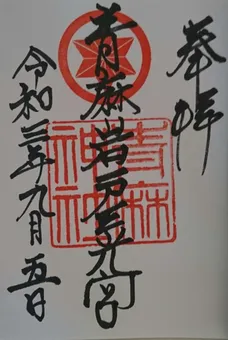 奉拝
青麻岩戸三光宮
令和三年九月五日
青麻
神社